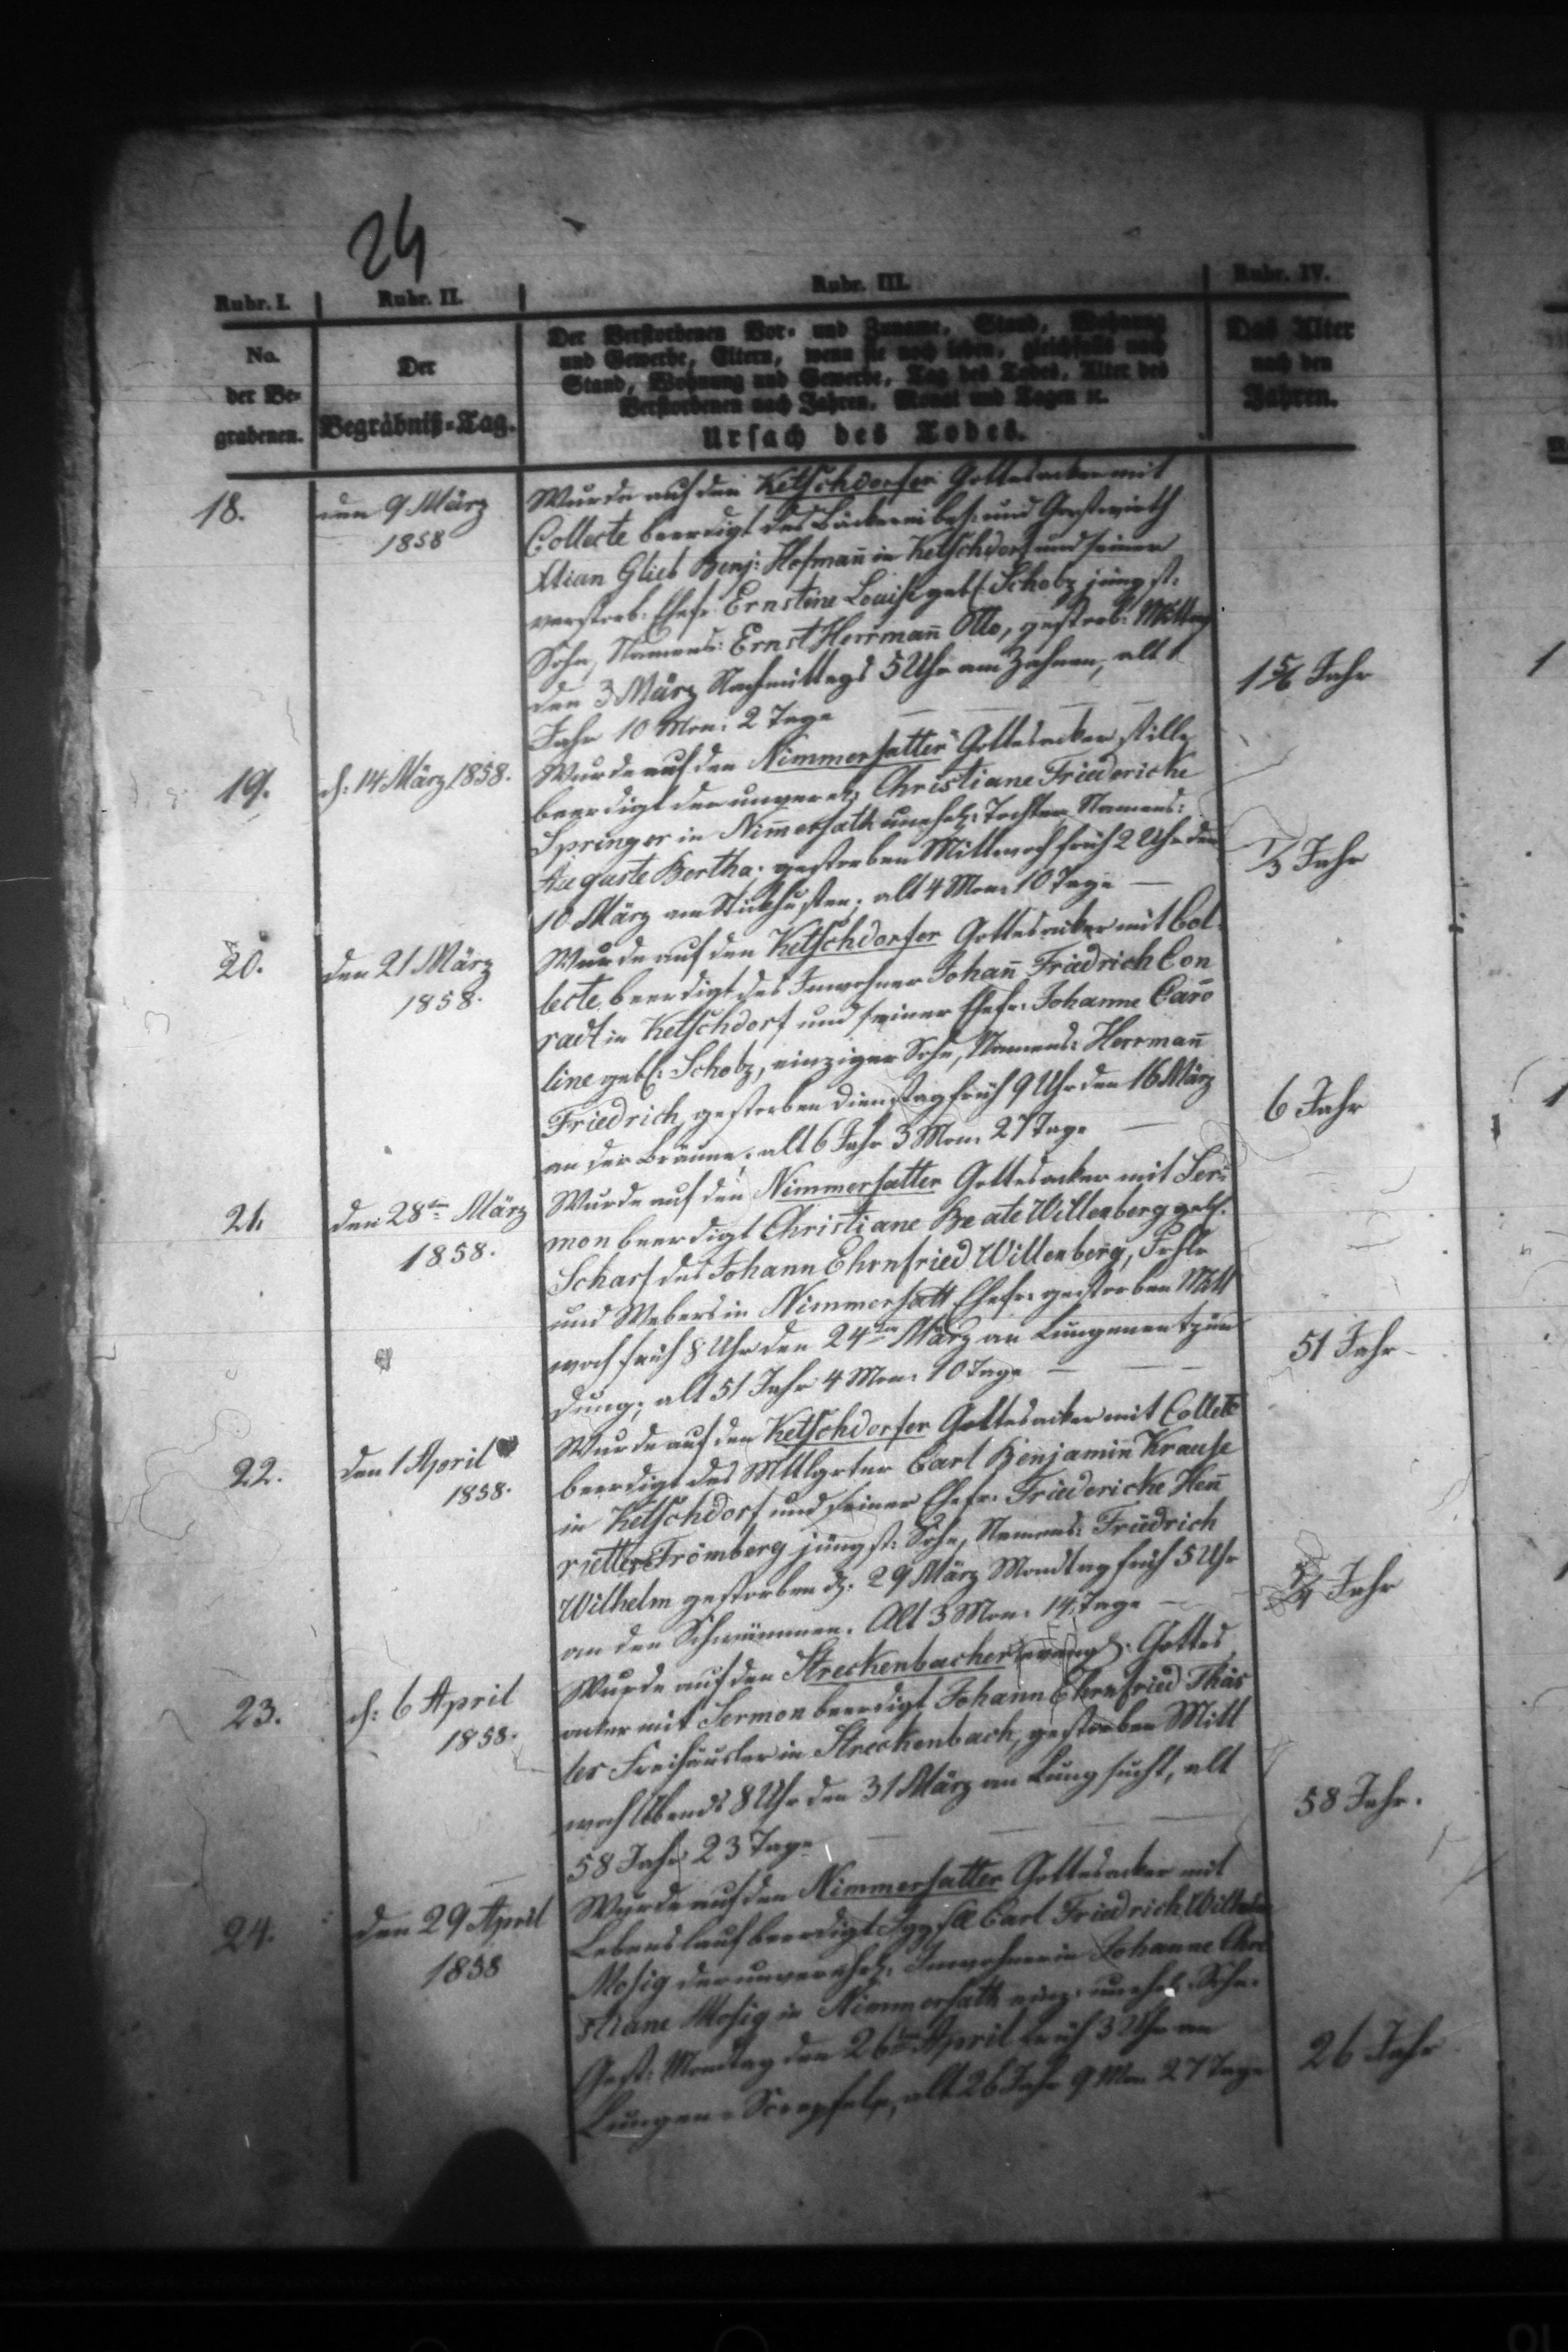 24
Rubr. I. Rubr. II. Rubr. III. Rubr. IV.
No. der Begrabenen.
Der Begräbniß-Tag.
Der Verstorbenen Vor- und Zuname, Stand, Wohnung
und Gewerbe, Eltern, wenn sie noch leben, gleichfalls nach
Stand, Wohnung und Gewerbe, Tag des Todes, Alter des
Verstorbenen nach Jahren, Monat und Tagen ec.
Ursach des Todes.
Das Alter
nach den
Jahren.
18.
den 9 März
1858
Wurde auf den Ketschdorfer Gottesacker mit
Collecte beerdigt des Bäckereibes: und Gastwirth
Glieb Benj: Hofmañ in Ketschdorf und seiner
verstorb: Ehefr: Ernstine Louise geb: Scholz jüngst:
Sohn, Namens: Ernst Herrmañ Otto, gestorb:
den 3 März Nachmittags 5 Uhr am Zahnen, alt 1
Jahr 10 Mon: 2 Tage
1 5/6 Jahr
19.
d: 14 März 1858.
Wurde auf den Nimmersatter Gottesacker stille
beerdigt der unvereh: Christiane Friedericke
Springer in Nim̃ersath unehel: Tochter Namens:
Auguste Bertha; gestorben Mittwoch früh 2 Uhr den
10 März am Stickhusten; alt 4 Mon: 10 Tage
1/3 Jahr
20.
den 21 März
1858.
Wurde auf den Ketschdorfer Gottesacker mit Col
lecte beerdigt des Inwohner Johañ Friedrich Con
radt in Ketschdorf und seiner Ehefr: Johanne Caro
line geb: Scholz, einziger Sohn, Namens: Herrmañ
Friedrich, gestorben Dienstag früh 9 Uhr den 16 März
an der Bräune. alt 6 Jahr 3 Mon: 27 Tage
6 Jahr
21.
den 28ten März
1858.
Wurde auf den Nimmersatter Gottesacker mit Ser
mon beerdigt Christiane Beate Willenberg geb:
Scharf des Johann Ehrenfried Willenberg,
und Webers in Nimmersatt Ehefr: gestorben Mitt
woch früh 8 Uhr den 24ten März an Lungenentzün
dung; alt 51 Jahr 4 Mon: 10 Tage
51 Jahr
22.
den 1 April
1858.
Wurde auf den Ketschdorfer Gottesacker mit Collecte
beerdigt des Carl Benjamin Krause
in Ketschdorf und seiner Ehefr: Friedericke Heñ
riette Frömberg jüngst: Sohn, Namens: Friedrich
Wilhelm gestorben d: 29 März Mondtag früh 5 Uhr
an den Schwämmen. Alt 3 Mon: 14 Tage
1/4 Jahr
23.
d: 6 April
1858.
Wurde auf den Streckenbacher evang: Gottes
acker mit Sermon beerdigt Johann Ehrenfried Thäs
ler Freihäusler in Streckenbach, gestorben Mitt
woch Abends 8 Uhr den 31 März an Lungsucht, alt
58 Jahr 23 Tage
58 Jahr.
24.
den 29 April
1858
Wurde auf den Nimmersatter Gottesacker mit
Lebenslauf beerdigt Carl Friedrich Wilhelm
Mosig der unverehel: Inwohnerin Johanne Chri
stiane Mosig in Nimmersath einz: unehel: Sohn.
Gest: Mondtag den 26ten April früh 3 Uhr an
alt 26 Jahr 9 Mon 27 Tage
26 Jahr